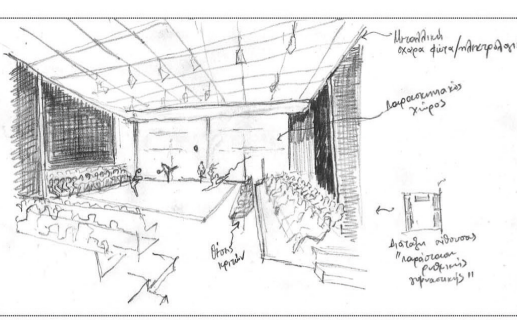 Μεταλλική
σχάρα φώτα/ηλεκτρολογ
Παρασκηνιακός
χώρος
θέσεις
κριτών
Διάταξη αίθουσας
"παράσταση
ρυθμικής
γυμναστικής"